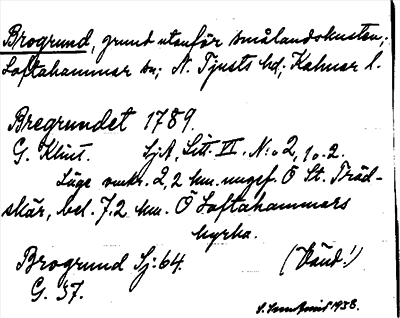 Brogrund, grund utanför smålandskusten;
Loftahammar sn; N. Tjusts hd; Kalmar l.
Bregrundet 1789.
G. Klint. SjA, Litt. VI. N:o 2, 1 o. 2.
Läge omkr. 2,2 km. ungef. Ö St. Träd-
skär, bel. 7,2 km. Ö Loftahammars
kyrka.
Brogrund Sj: 64. (Känd!)
G. 57.
1938.